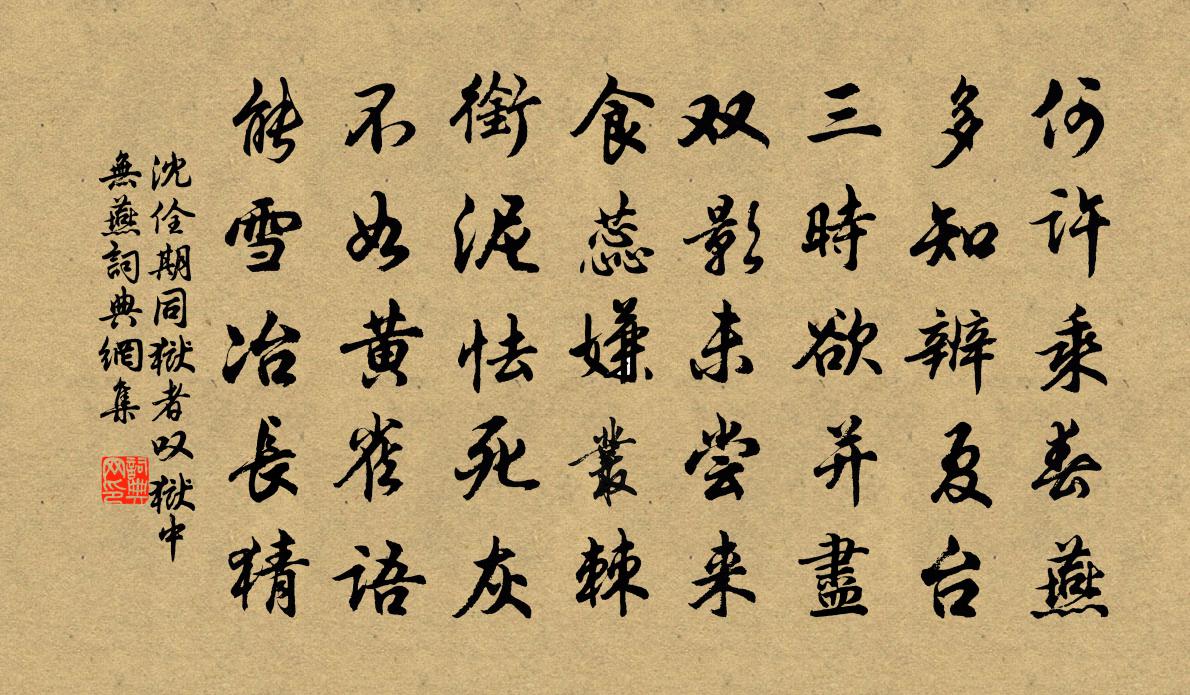 何許乘春燕
多知辨夏台
三時欲并盡
双影未尝来
食蕊嫌叢棘
銜泥怯死灰
不如黄雀語
能雪冶長猜
沈佺期同獄者叹獄中
無燕詞典網集
詞典
网印